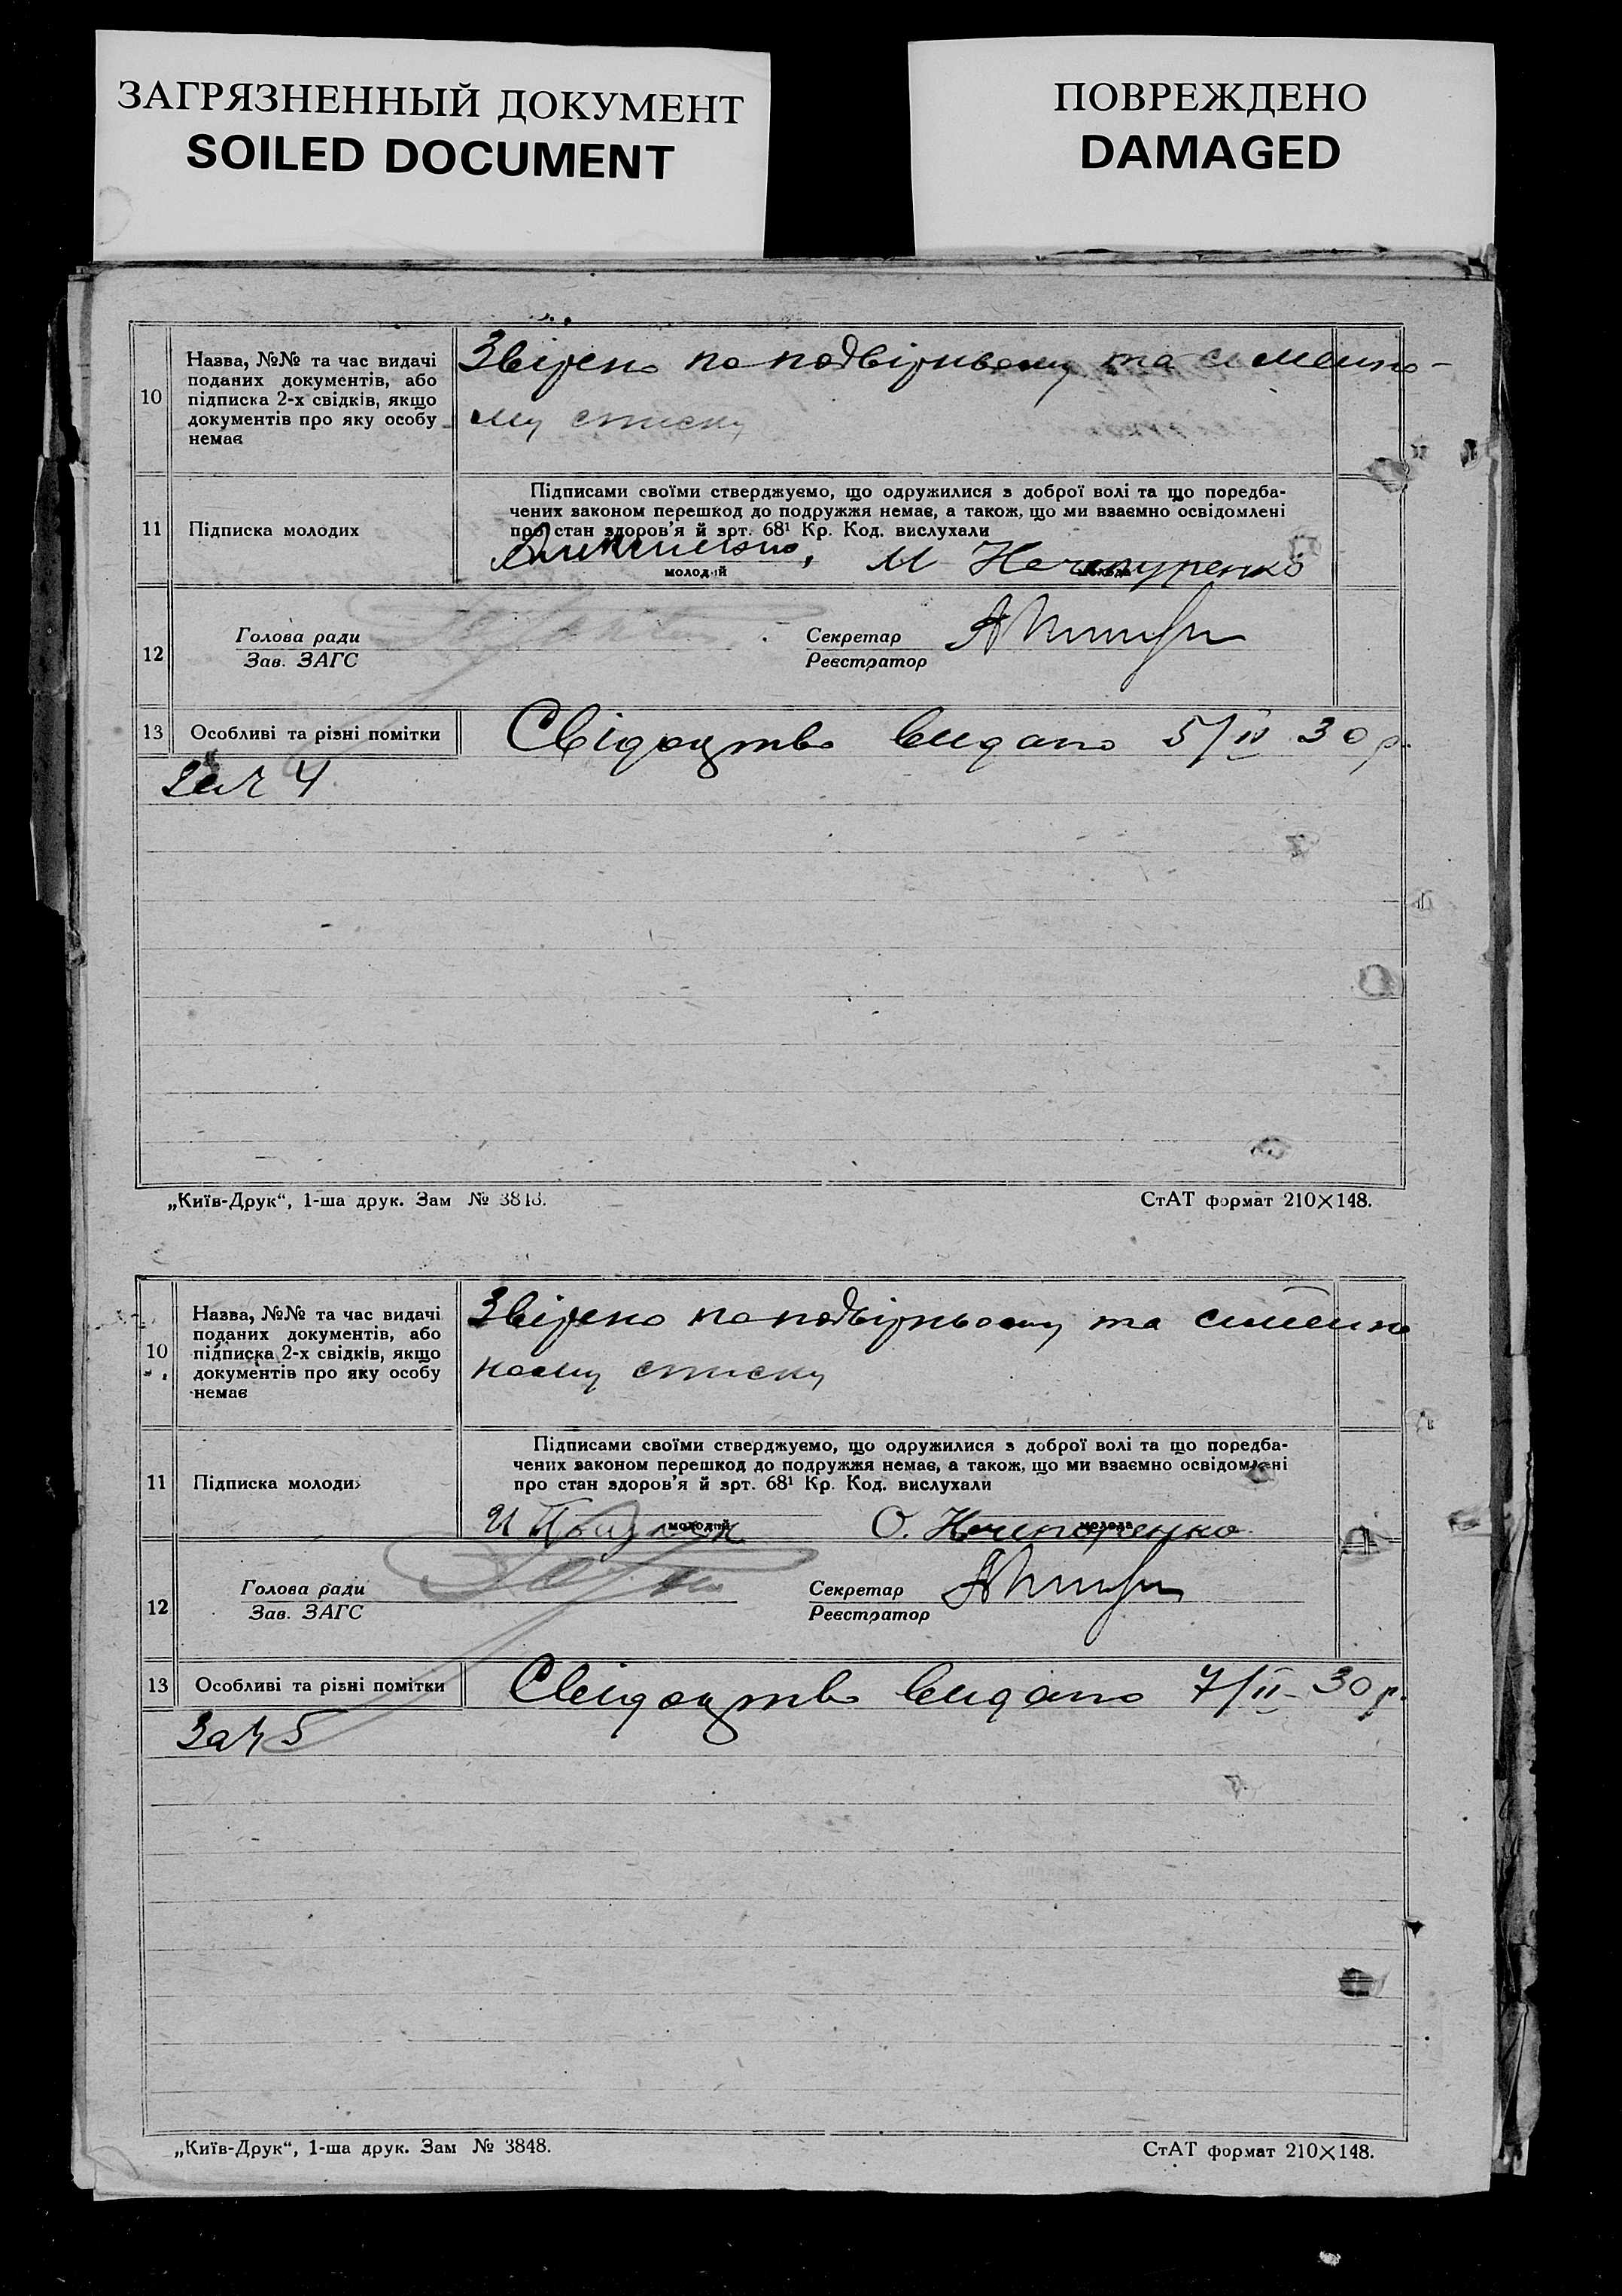 ЗАГРЯЗНЕННЫЙ ДОКУМЕНТ
SOILED DOCUMENT
ПОВРЕЖДЕНО
DAMAGED
10
Назва, №№ та час видачі
поданих документів, або
підписка 2-х свідків, якщо
документів про яку особу
немає
Звірено по подвірньому та симейно-
му списку
11
Підписка молодих
Підписами своїми стверджуємо, що одружилися з доброї волі та що поредба-
чених законом перешкод до подружжя немає, а також, що ми взаємно освідомлені
про стан здоров'я й арт. 68¹ Кр. Код. вислухали
молодий
М Нечипуренко
молода
12
Голова ради
Зав. ЗАГС
Секретар
Реєстратор
13
Особливі та різні помітки
Свідоцтво видано 5/IV 30 р.
4
„Київ-Друк“, 1-ша друк. Зам № 3848.
СтАТ формат 210×148.
10
Назва, №№ та час видачі
поданих документів, або
підписка 2-х свідків, якщо
документів про яку особу
немає
Звірено по подвірньому та симейно
ному списку
11
Підписка молодих
Підписами своїми стверджуємо, що одружилися з доброї волі та що поредба-
чених законом перешкод до подружжя немає, а також, що ми взаємно освідомлені
про стан здоров'я й арт. 68¹ Кр. Код. вислухали
И
молодий
О. Нечипоренко
молода
12
Голова ради
Зав. ЗАГС
Секретар
Реєстратор
13
Особливі та різні помітки
Свидоцтво видано 7/II-30 р.
5
„Київ-Друк“, 1-ша друк. Зам № 3848.
СтАТ формат 210×148.